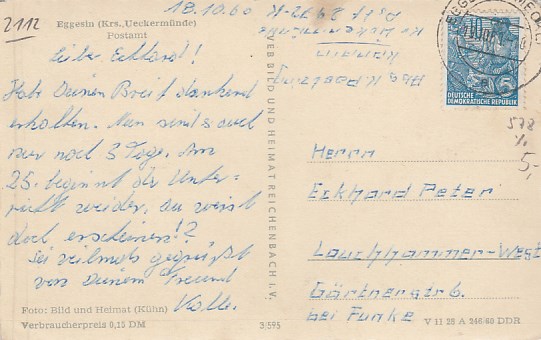 2112
Eggesin (Krs. Ueckermünde)
Postamt
18.10.60
Lieber Eckhard!
Habe Deinen Brief dankend
erhalten. Nun sind's auch
nur noch 3 Tage. Am
25. beginnt der Unter-
richt wieder, du wirst
doch erscheinen!?
Sei vielmals gegrüßt
von Deinem Freund
Kalle.
Foto: Bild und Heimat (Kühn)
Verbraucherpreis 0,15 DM
VEB BILD UND HEIMAT REICHENBACH I. V.
3/595
Abs. K.
Kr. Ueckermünde
DEUTSCHE
DEMOKRATISCHE REPUBLIK
10
5
578
5,-
Herrn
Eckhard Peter
Lauchhammer-West
Gärtnerstr. 6
bei Funke
V H 28 A 246/60 DDR